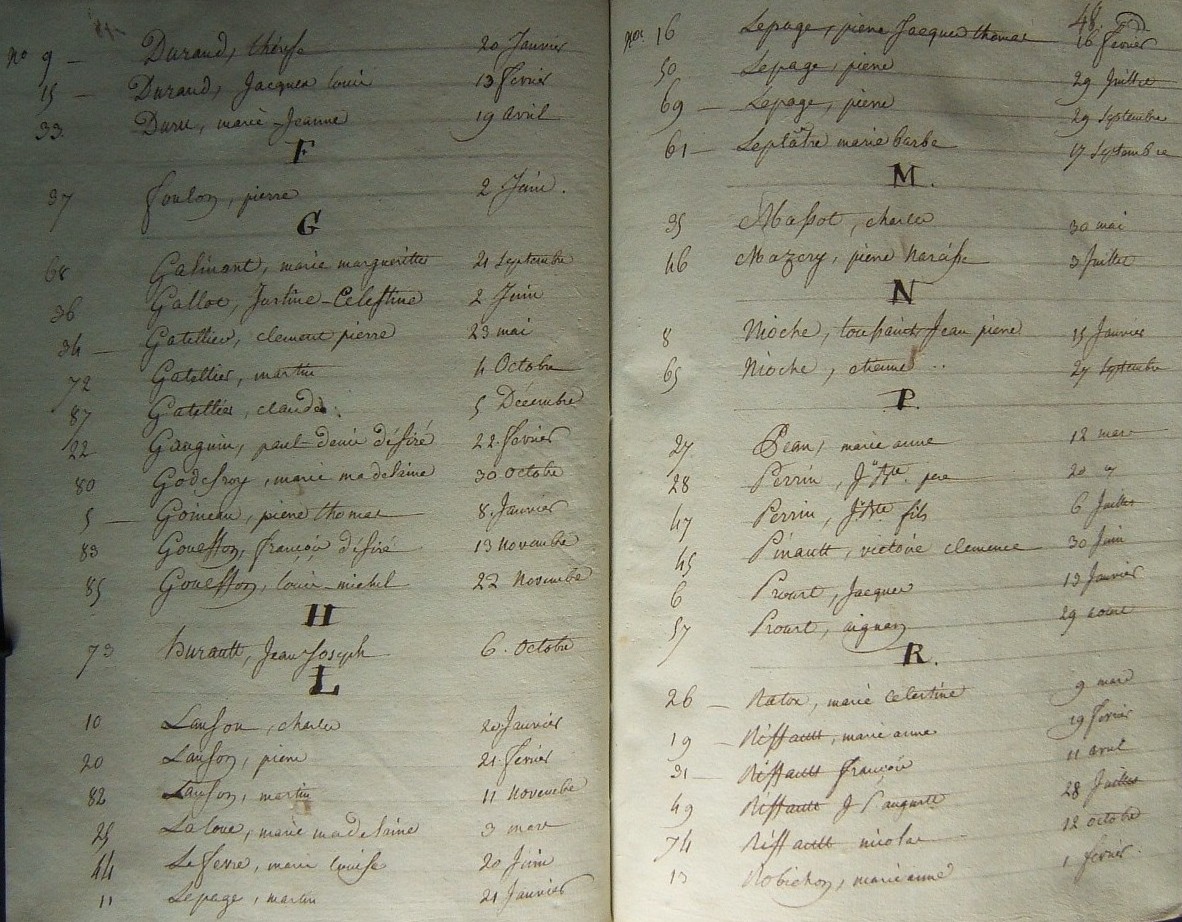 No 9 — Durand, thérèse 20 Janvier
15 — Durand, Jacques Louis 13 fevrier
33. Duru, marie-Jeanne 19 avril
F
37 foulon, pierre 2 Juin.
G
68 Galinant, marie margueritte 21 Septembre
36 Gallot, Justine-Celestine 2 Juin
34 — Gatellier, clement pierre 23 mai
72 Gatellier, martin 4 Octobre
87 Gatellier, claude 5 Décembre
22 Gauguin, paul-denis désiré 22. fevrier
80 Godefroy, marie madelaine 30 octobre
5 — Goineau, pierre thomas 8. Janvier
83 Gouesson, françois désiré 13 novembre
85 Gouesson, louis-michel 22 Novembre
H
73 hurault, Jean Joseph 6. Octobre
L
10 Lanson, charles 20 Janvier
20 Lanson, pierre 21. fevrier
82 Lanson, martin 11 novembre
25 Laloue, marie madelaine 3 mars
44 Lefevre, marie louise 20 Juin
11 Lepage, martin 21 Janvier
48.
Nos 16 Lepage, pierre Jacques thomas 16 fevrier
50 Lepage, pierre 29 Juillet
69 — Lepage, pierre 29 Septembre
61 — Leplâtre marie barbe 17 Septembre
M.
35 Massot, charles 30 mai
46 Mazery, pierre 3 Juillet
N
8 Nioche, toussaint Jean pierre 15 Janvier
65 Nioche, etienne 27 Septembre
P.
27. Pean, marie anne 12 mars
28 Perrin, J.n Bte. pere 20 d
47 Perrin, J.n Bte. fils 6 Juillet
45 Pinault, victoire clemence 30 Juin
6 Proust, Jacques 13 Janvier
57 Proust, aignan 29 aout
R.
26 — Ratou, marie celestine 9 mars
19 — Riffault, marie anne 19 fevrier
31 — Riffault françois 11 avril
49 Riffault J P auguste 28 Juillet
74 Riffault nicolas 12 octobre
13 Robichon, marie anne 1 fevrier.